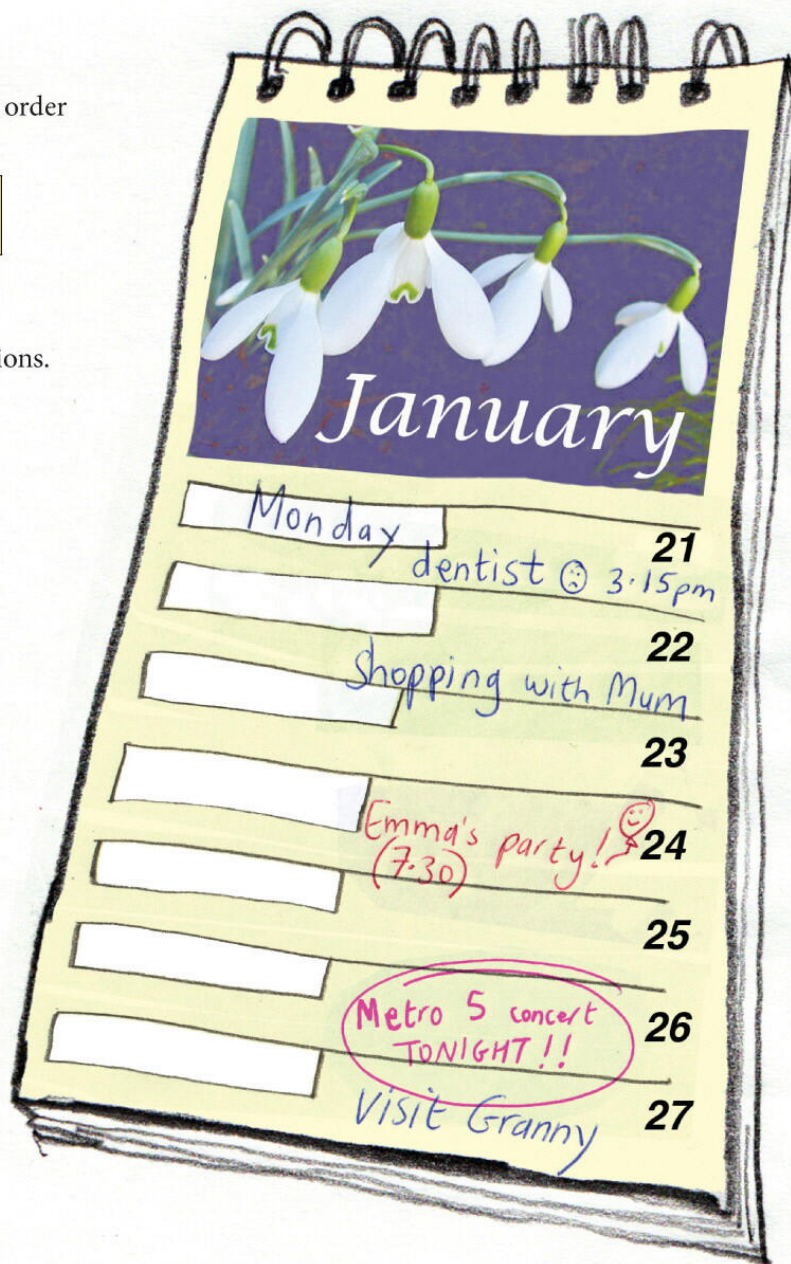 order
ions.
January
Monday
21
dentist 3.15pm
22
Shopping with Mum
23
Emma's party!
(7.30)
24
25
Metro 5 concert
TONIGHT!!
26
Visit Granny
27